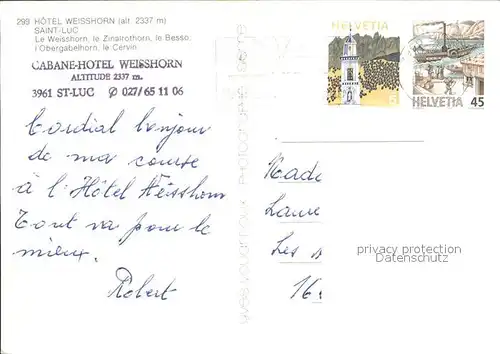 299 HÔTEL WEISSHORN (alt. 2337 m)
SAINT-LUC
Le Weisshorn, le Zinalrothorn, le Besso,
l'Obergabelhorn, le Cervin.
CABANE-HOTEL WEISSHORN
ALTITUDE 2337 m.
3961 ST-LUC ✆ 027/65 11 06
HELVETIA
6
HELVETIA 45
Cordial bonjour
de ma course
à l'Hôtel Weisshorn
Tout va pour le
mieux.
Robert
Les
16
privacy protection
Datenschutz